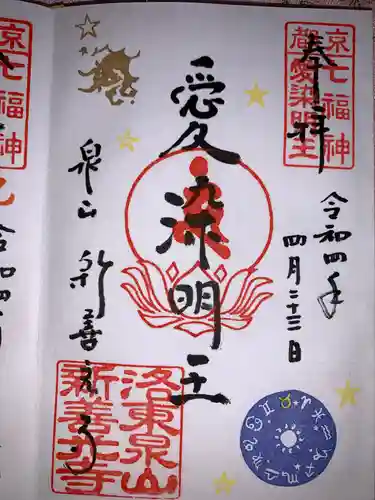 奉拝
京七福神
都愛染明王
令和四年
四月二十三日
愛染明王
泉山 新善光寺
洛東泉山
新善光寺
京七福神
令和四